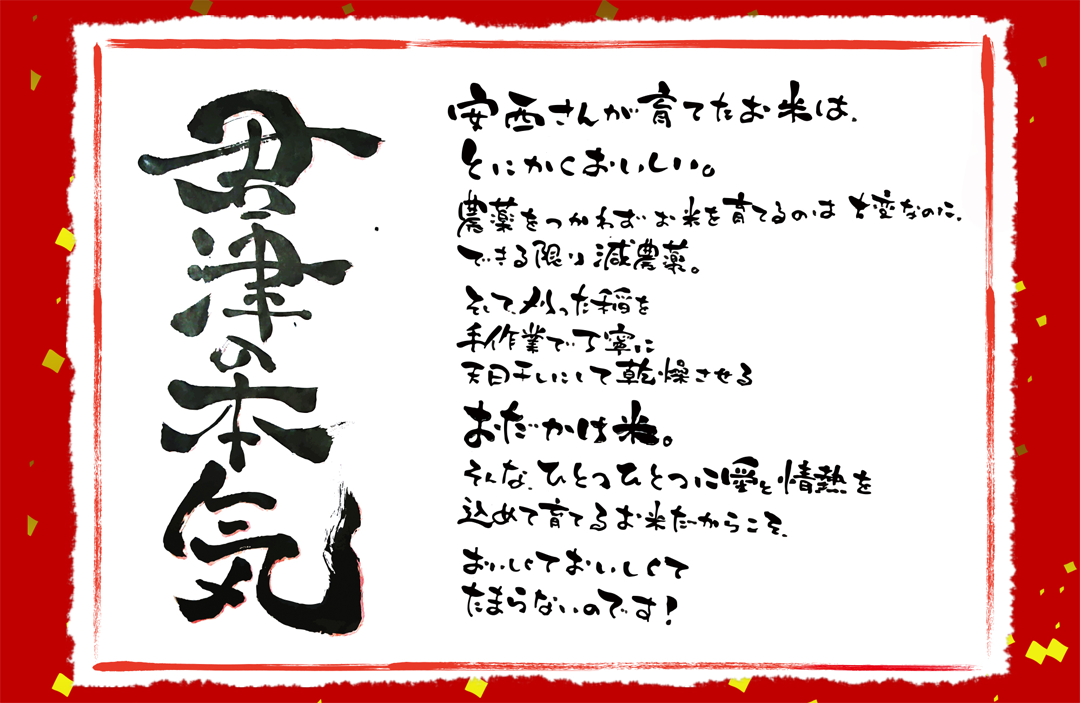 君津の本気
安西さんが育てたお米は、
とにかくおいしい。
農薬をつかわずお米を育てるのは大変なのに、
できる限り減農薬。
そして、刈った稲を
手作業で丁寧に
天日干しにして乾燥させる
おだかけ米。
そんな、ひとつひとつに愛と情熱を
込めて育てるお米だからこそ、
おいしくておいしくて
たまらないのです！